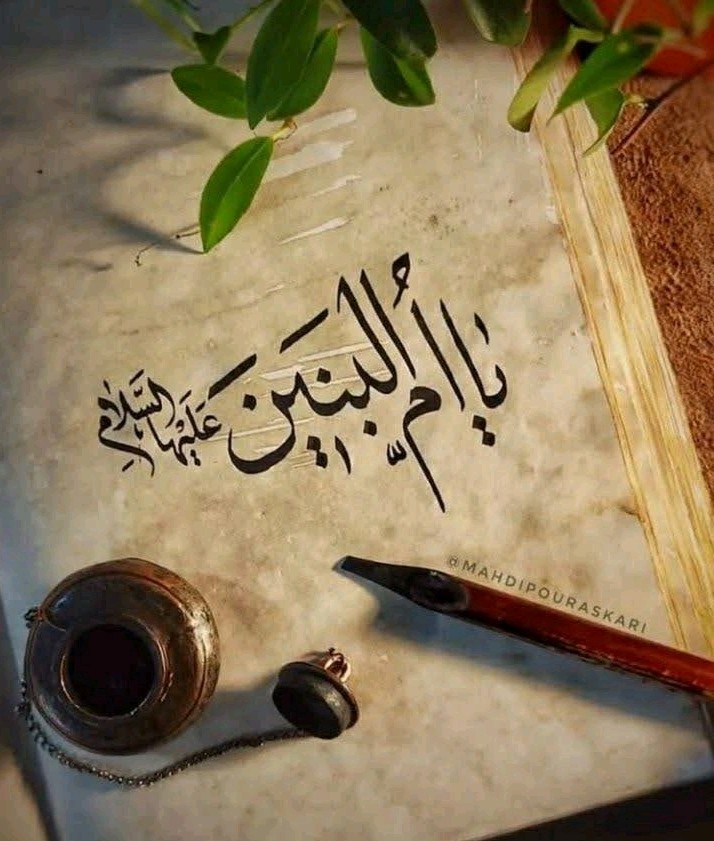 يا أمُّ البَنِينَ عَلَيْها السَّلام
@MAHDIPOURASKARI